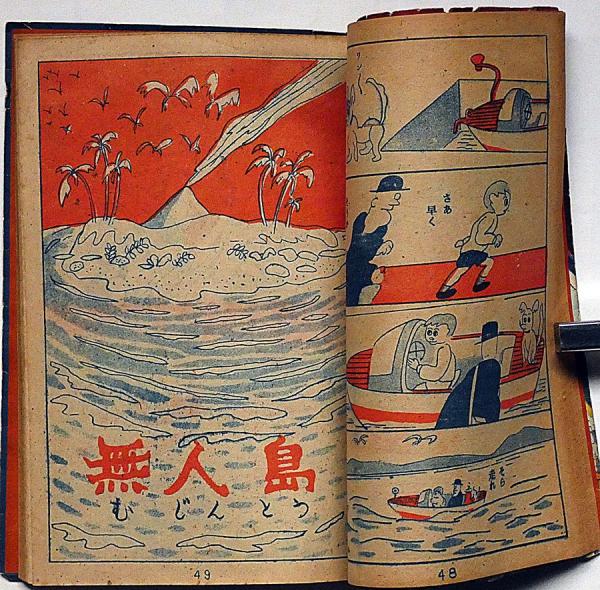 ワン
さあ
早く
そら
走れ
48
無人島
むじんとう
49